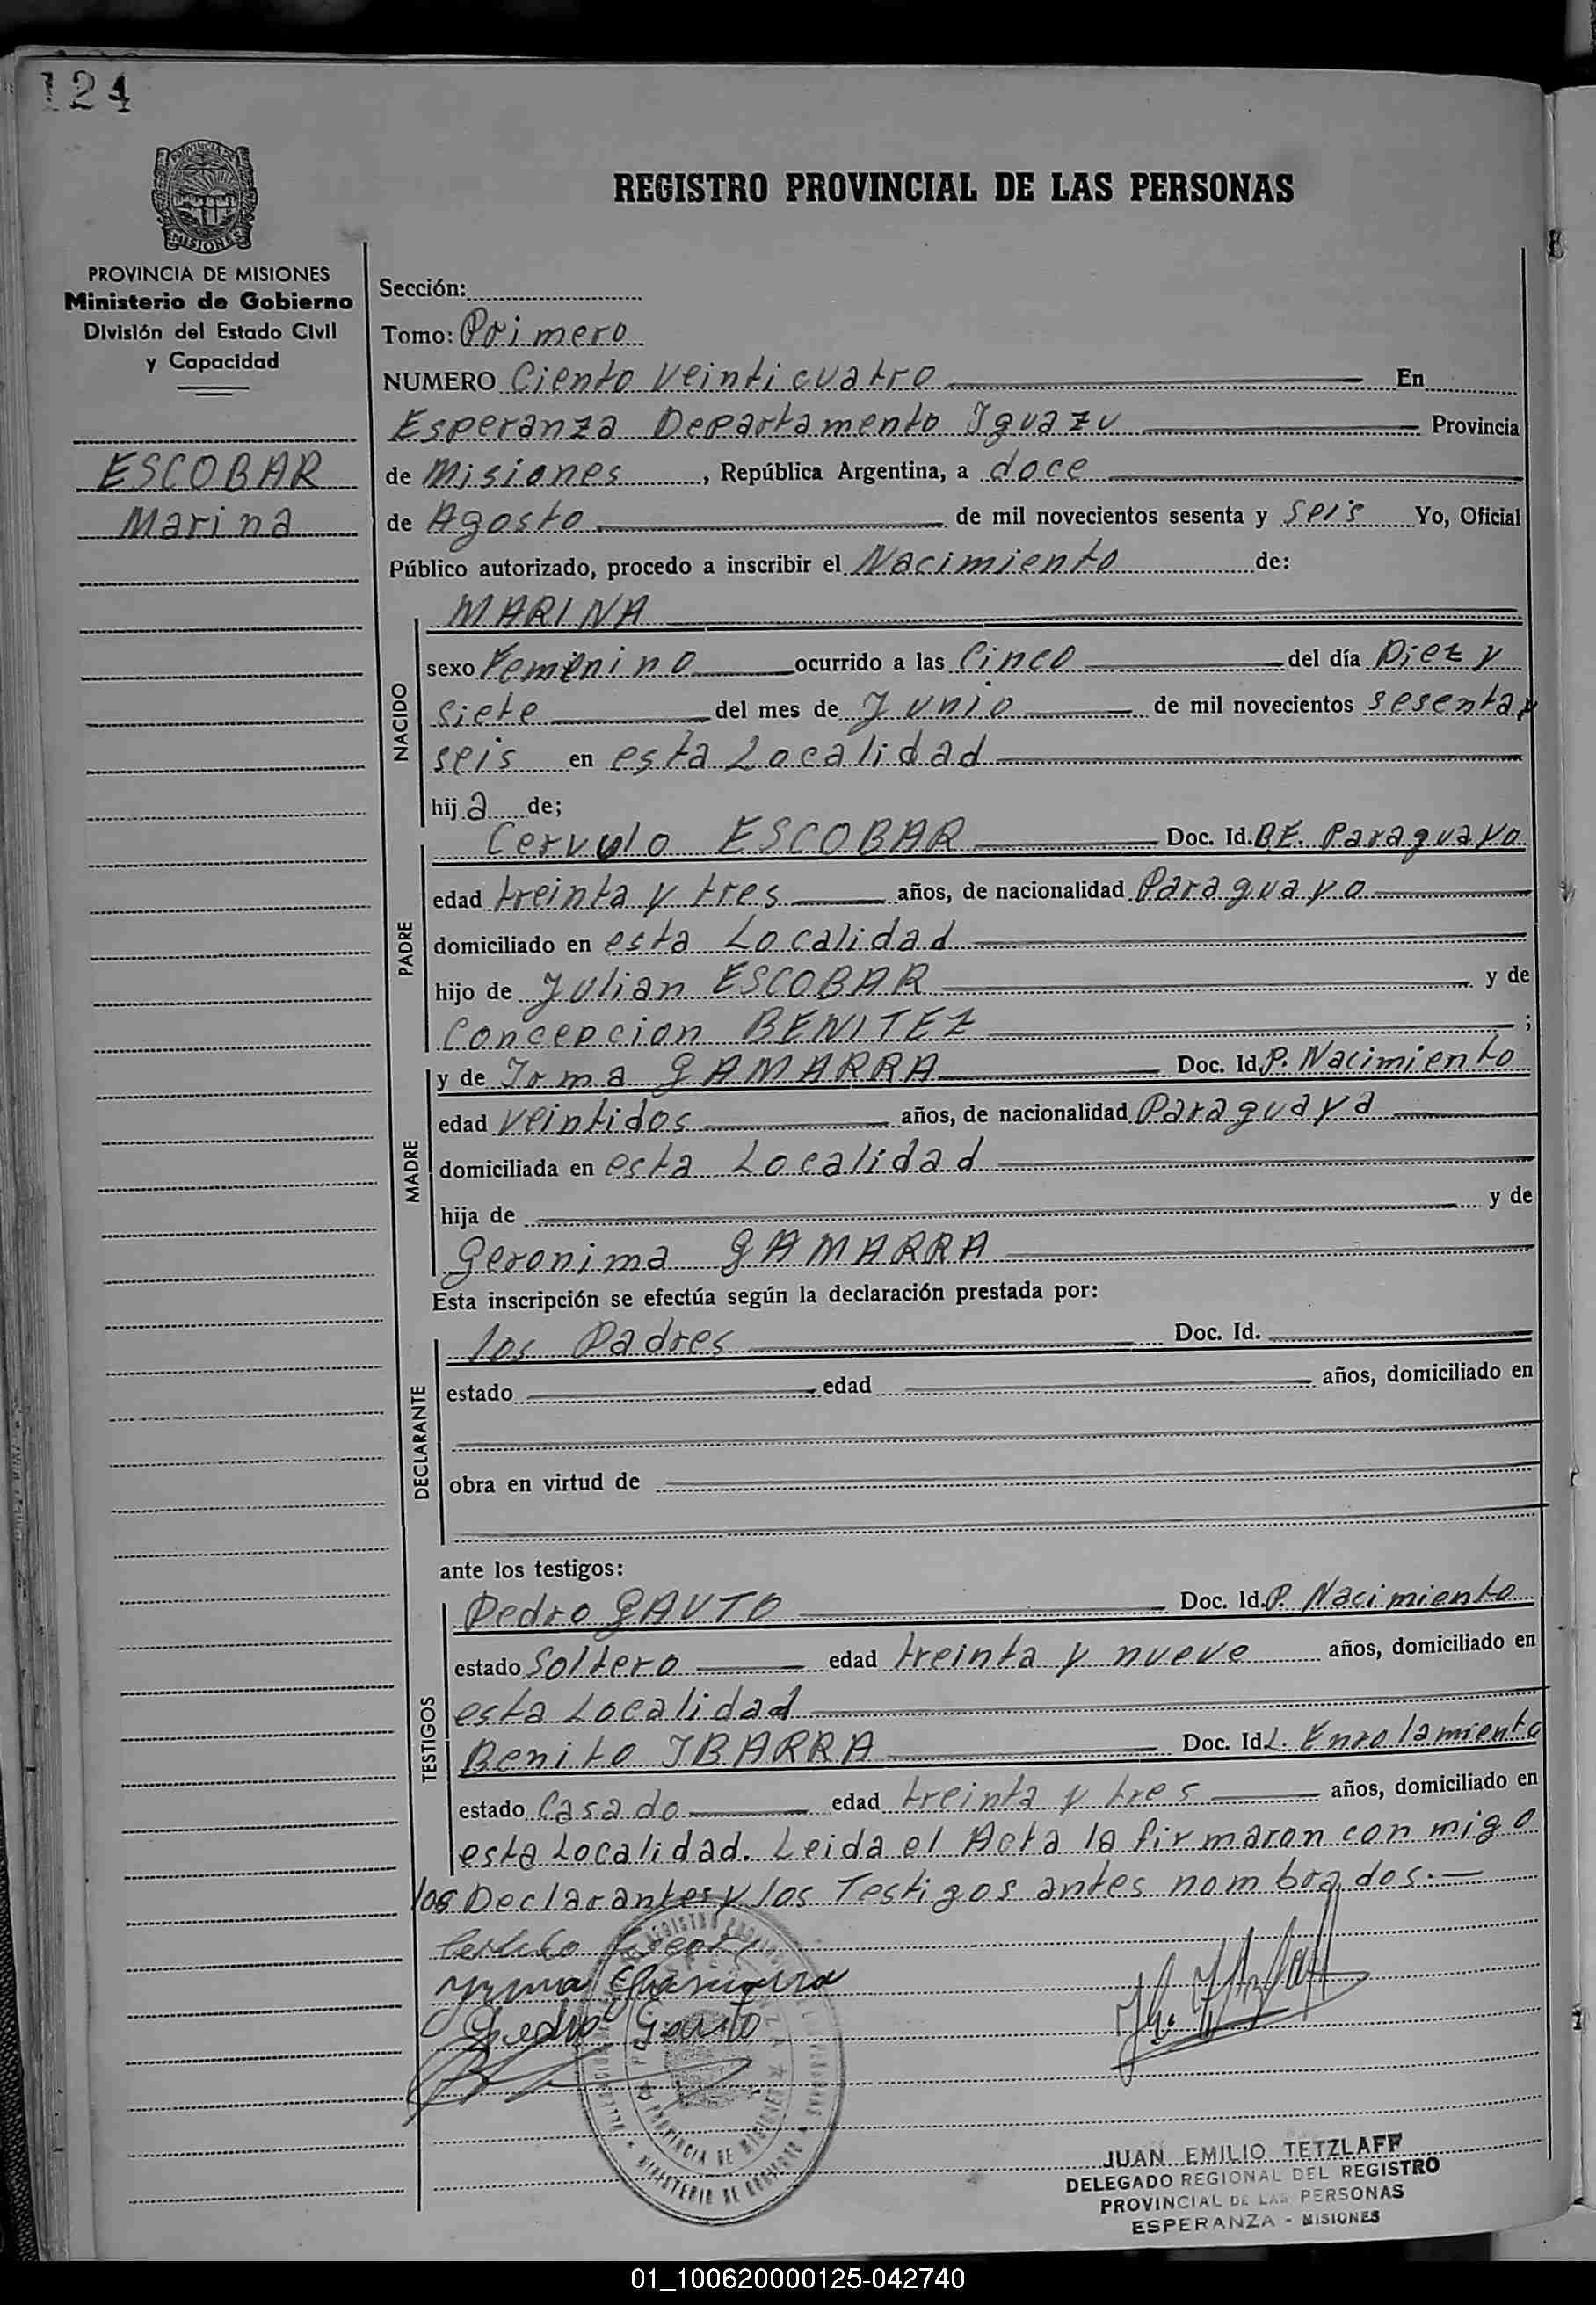 124
PROVINCIA DE
MISIONES
REGISTRO PROVINCIAL DE LAS PERSONAS
PROVINCIA DE MISIONES
Ministerio de Gobierno
División del Estado Civil
y Capacidad
ESCOBAR
Marina
Sección:
Tomo: Primero
NUMERO Ciento Veinticuatro En
Esperanza Departamento Iguazu Provincia
de Misiones, República Argentina, a doce
de Agosto de mil novecientos sesenta y Seis Yo, Oficial
Público autorizado, procedo a inscribir el Nacimiento de:
NACIDO
MARINA
sexo Femenino ocurrido a las Cinco del día Diez y
siete del mes de Junio de mil novecientos sesenta y
seis en esta Localidad
hija de;
PADRE
Cervulo ESCOBAR Doc. Id. B.E. Paraguayo
edad treinta y tres años, de nacionalidad Paraguayo
domiciliado en esta Localidad
hijo de Julian ESCOBAR y de
Concepcion BENITEZ ;
MADRE
y de Irma GAMARRA Doc. Id. P. Nacimiento
edad veintidos años, de nacionalidad Paraguaya
domiciliada en esta Localidad
hija de y de
Geronima GAMARRA
Esta inscripción se efectúa según la declaración prestada por:
DECLARANTE
los Padres Doc. Id.
estado edad años, domiciliado en
obra en virtud de
ante los testigos:
TESTIGOS
Pedro GAUTO Doc. Id. P. Nacimiento
estado Soltero edad treinta y nueve años, domiciliado en
esta Localidad
Benito IBARRA Doc. Id L. Enrolamiento
estado Casado edad treinta y tres años, domiciliado en
esta Localidad. Leida el Acta la firmaron con migo
los Declarantes y los Testigos antes nombrados.
Yrma Gamarra
Pedro Gauto
PROVINCIA DE MISIONES
MINISTERIO DE GOBIERNO
JUAN EMILIO TETZLAFF
DELEGADO REGIONAL DEL REGISTRO
PROVINCIAL DE LAS PERSONAS
ESPERANZA - MISIONES
01_100620000125-042740